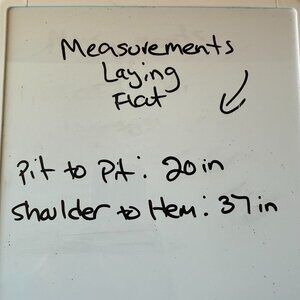 Measurements
Laying
Flat
Pit to Pit: 20 in
Shoulder to Hem: 37 in